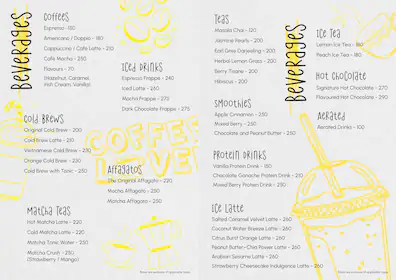 Beverages
Coffees
Espresso - 150
Americano / Doppio - 180
Cappuccino / Cafe Latte - 210
Cafe Mocha - 250
Flavours - 70
(Hazelnut, Caramel,
Irish Cream, Vanilla)
Cold Brews
Original Cold Brew - 200
Cold Brew Latte - 210
Vietnamese Cold Brew - 230
Orange Cold Brew - 230
Cold Brew with Tonic - 250
Matcha Teas
Hot Matcha Latte - 220
Cold Matcha Latte - 220
Matcha Tonic Water - 250
Matcha Crush - 250
(Strawberry / Mango)
Iced Drinks
Espresso Frappe - 240
Iced Latte - 260
Mocha Frappe - 270
Dark Chocolate Frappe - 275
COFFEE
LOVE
Affagatos
The Original Affagato - 220
Mocha Affagato - 250
Matcha Affagato - 250
Teas
Masala Chai - 120
Jasmine Pearls - 200
Earl Grey Darjeeling - 200
Herbal Lemon Grass - 200
Berry Tisane - 200
Hibiscus - 200
Smoothies
Apple Cinnamon - 250
Mixed Berry - 250
Chocolate and Peanut Butter - 250
Protein Drinks
Vanilla Protein Drink - 180
Chocolate Ganache Protein Drink - 210
Mixed Berry Protein Drink - 230
Ice Latte
Salted Caramel Velvet Latte - 260
Coconut Water Breeze Latte - 260
Citrus Burst Orange Latte - 260
Peanut Butter-Chia Power Latte - 260
Arabian Sesame Latte - 260
Strawberry Cheesecake Indulgence Latte - 260
Beverages
Ice Tea
Lemon Ice Tea - 180
Peach Ice Tea - 180
Hot Chocolate
Signature Hot Chocolate - 270
Flavoured Hot Chocolate - 290
Aerated
Aerated Drinks - 100